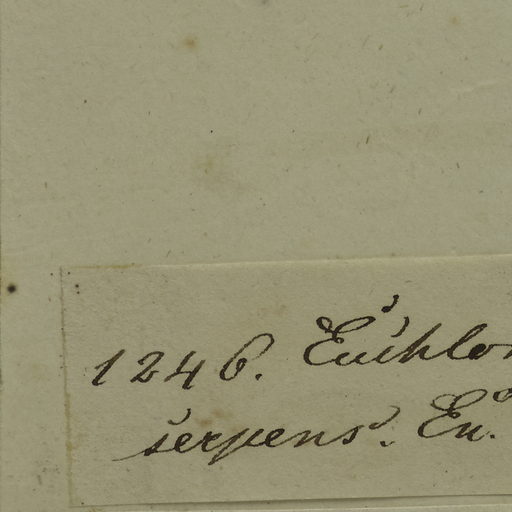 1246. Euchlor
serpens. En.